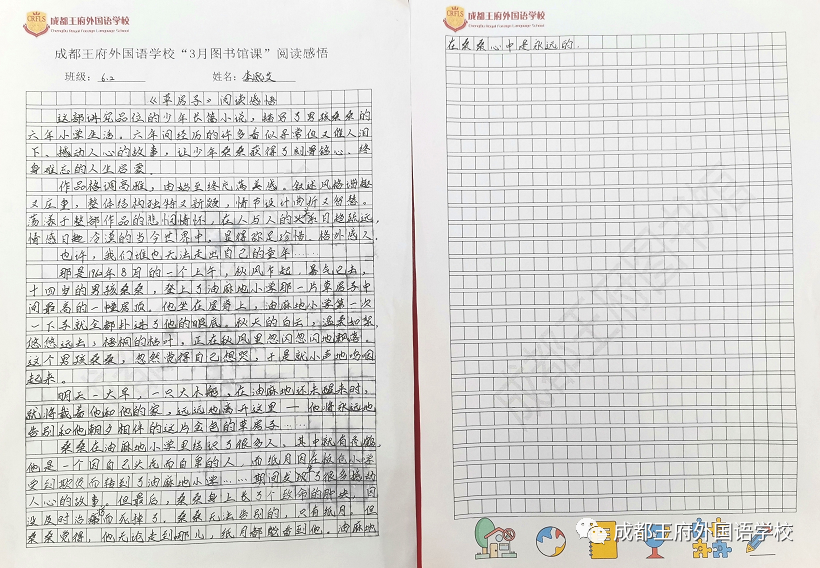 CRFLS 成都王府外国语学校
Chengdu Royal Foreign Language School
成都王府外国语学校“3月图书馆课”阅读感悟
班级：6.2 姓名：
《草房子》阅读感悟
这部讲究品位的少年长篇小说，描写了男孩桑桑的
六年小学生活。六年间经历的许多看似寻常但又催人泪
下、撼动人心的故事，让少年桑桑获得了刻骨铭心、终
身难忘的人生启蒙。
作品格调高雅，由始至终充满美感。叙述风格谐趣
又庄重，整体结构独特又新颖，情节设计曲折又智慧。
荡漾于整部作品的悲悯情怀，在人与人的关系日趋疏远、
情感日趋冷漠的当今世界中，显得弥足珍惜、格外感人。
也许，我们谁也无法走出自己的童年……
那是1962年8月的一个上午，秋风乍起，暑气已去，
十四岁的男孩桑桑，登上了油麻地小学那一片草房子中
间最高的一幢房顶。他坐在屋脊上，油麻地小学第一次
一下子就全部扑进了他的眼底。秋天的白云，温柔如絮，
悠悠远去；梧桐的枯叶，正在秋风里忽闪忽闪地飘落。
这个男孩桑桑，忽然觉得自己想哭，于是就小声地呜咽
起来。
明天一大早，一只大木船，在油麻地还未醒来时，
就将载着他和他的家，远远地离开这里——他将永远地
告别和他朝夕相伴的这片金色的草房子……
桑桑在油麻地小学里结识了很多人，其中就有秃鹤，
他是一个因自己头秃而自卑的人，而纸月因在板仓小学
受到欺侮而转到了油麻地小学……期间发现了很多撼动
人心的故事。但最后，桑桑身上长了个致命的肿块，因
没及时治
桑桑觉得，他无论走到哪儿，纸月都能看到他。油麻地
在桑桑心中是永远的。
CRFLS 成都王府外国语学校
Chengdu Royal Foreign Language School
成都王府外国语学校